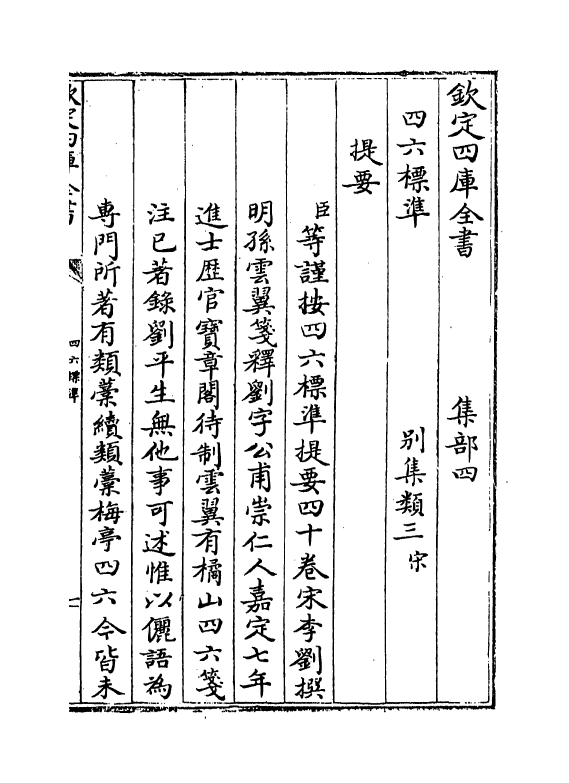 欽定四庫全書　集部四
四六標準　別集類三宋
提要
臣等謹按四六標準提要四十卷宋李劉撰
明孫雲翼箋釋劉字公甫崇仁人嘉定七年
進士歷官寶章閣待制雲翼有橘山四六箋
注已著錄劉平生無他事可述惟以儷語為
專門所著有類藁續類藁梅亭四六今皆未
欽定四庫全書
四六標準
一